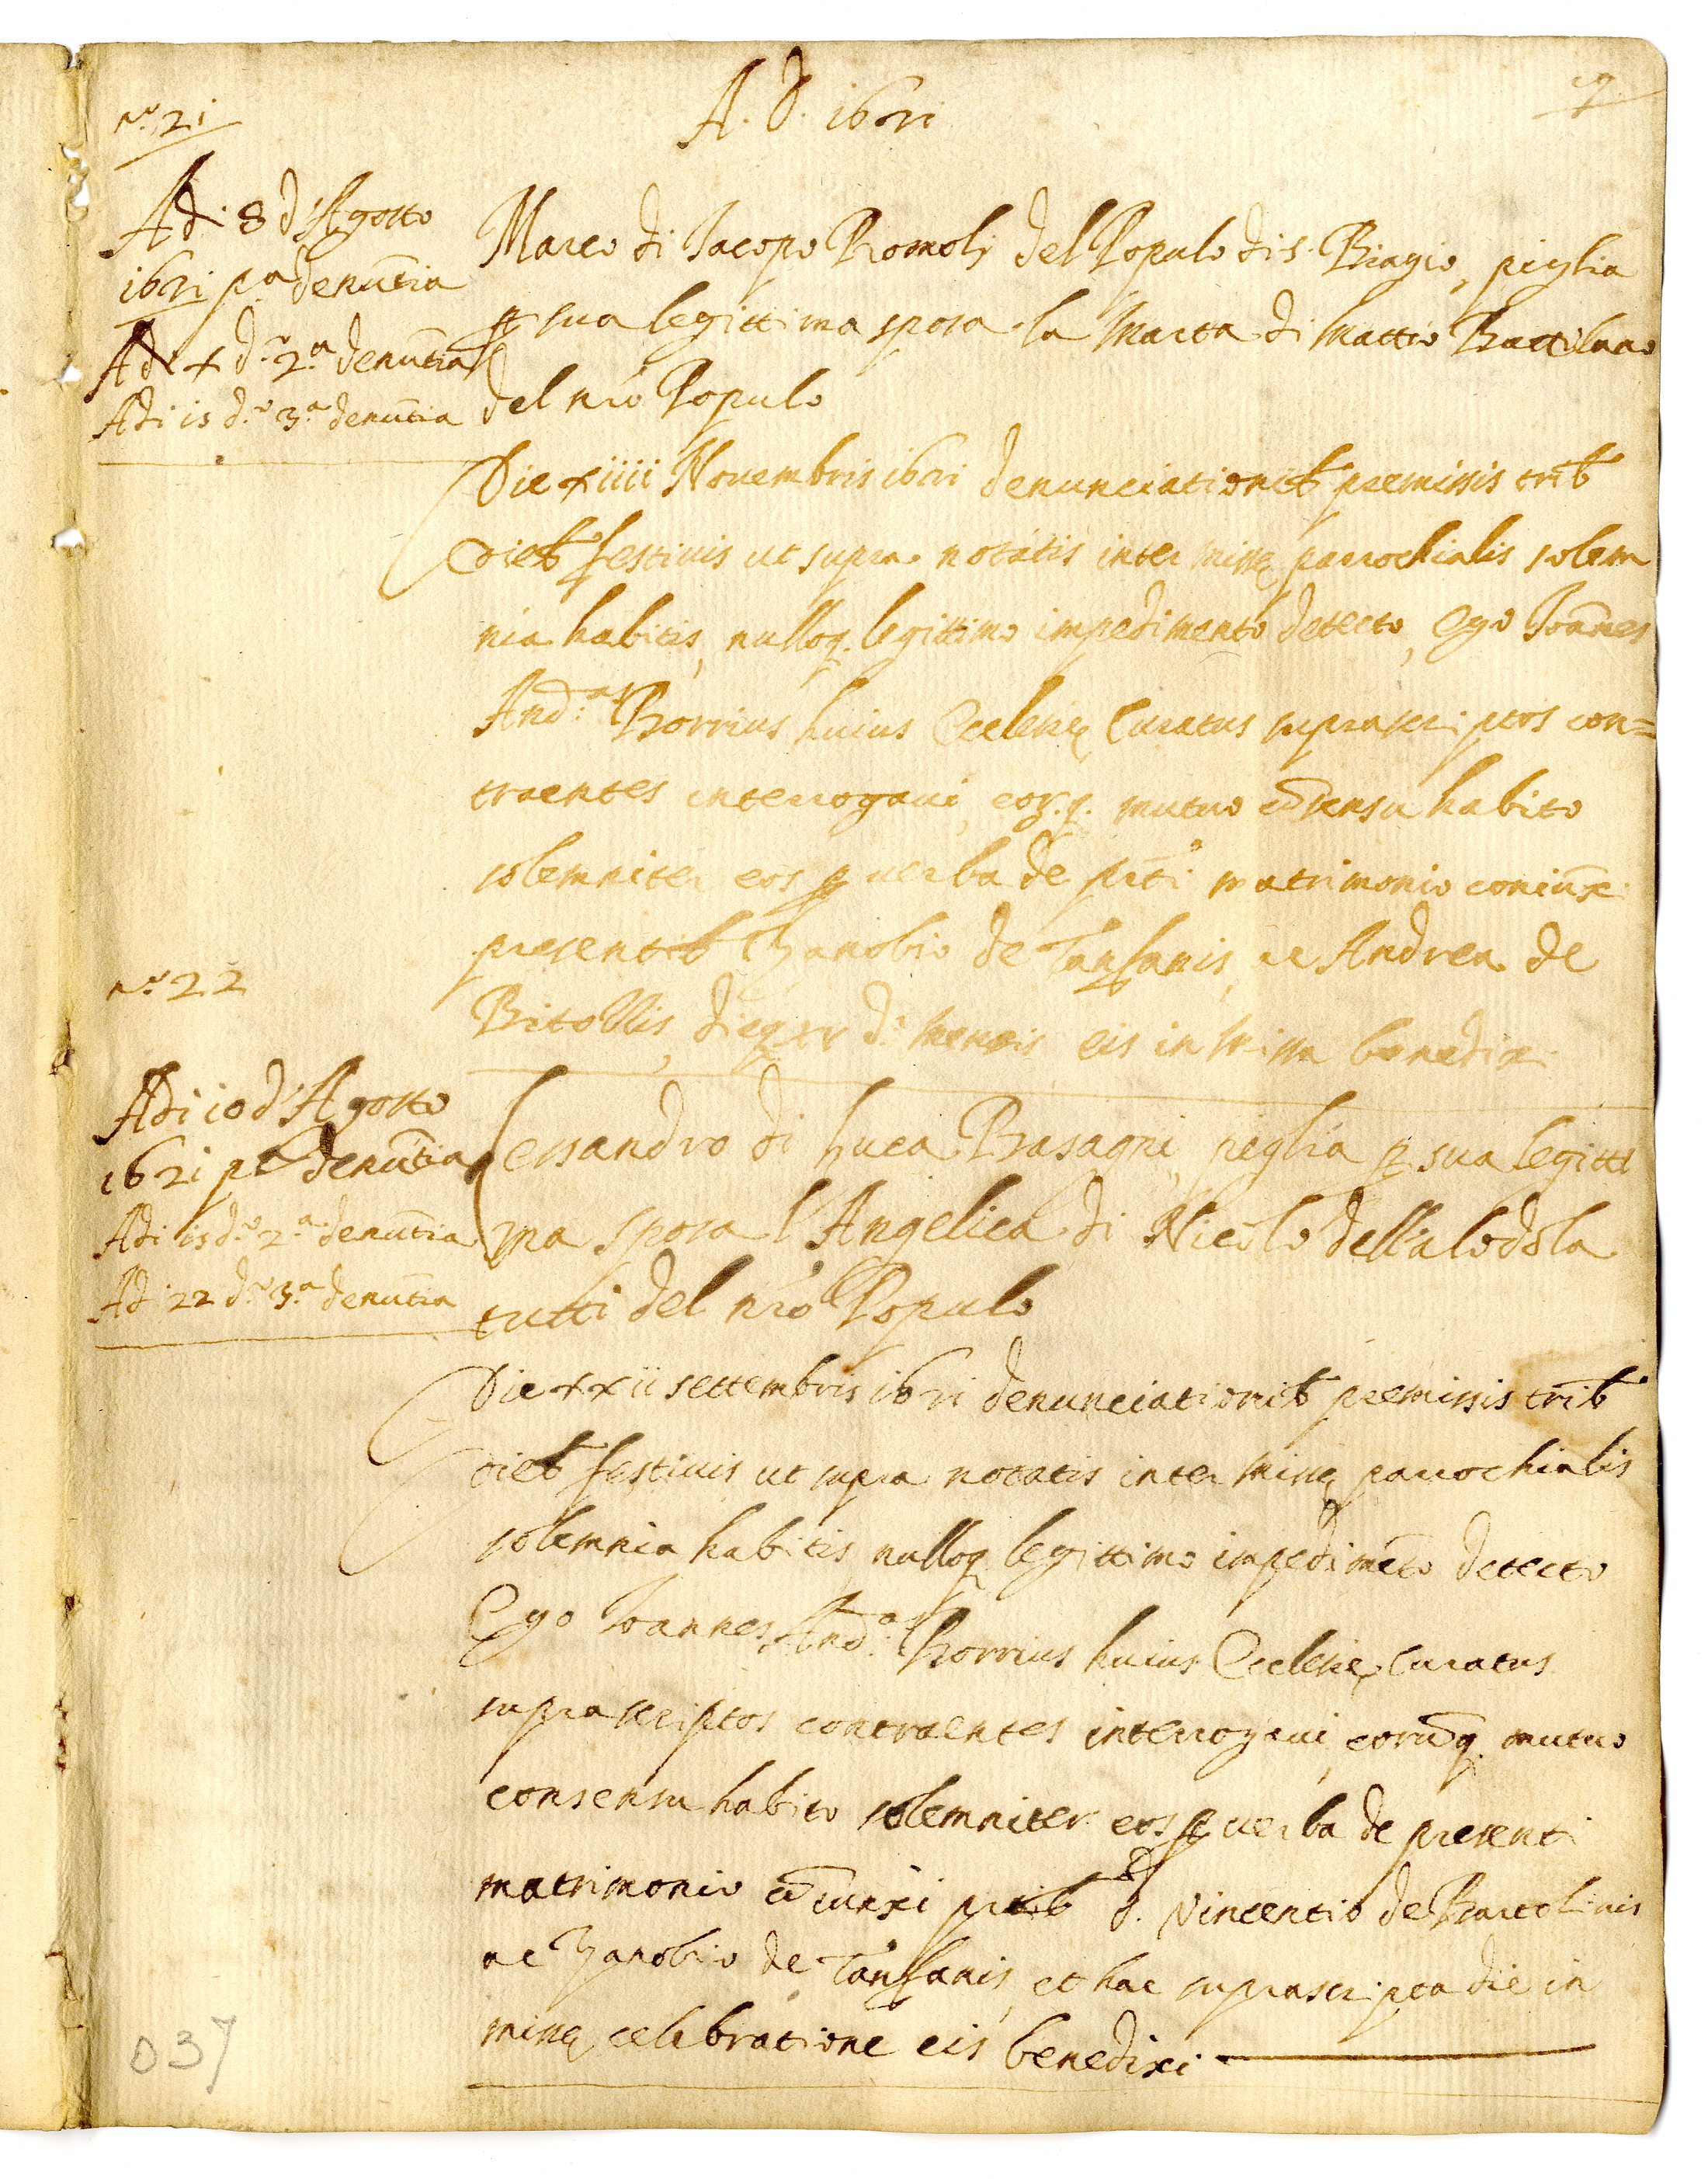 A. D. 1621
9
nº 21
Adi 8 d'Agosto
1621 pª denūtia
Adi x dº 2ª denūtia
Adi 15 dº 3ª denūtia
Marco di Iacopo Romoli del Populo di S. Biagio, piglia
p sua legittima sposa la Marta di Matteo
del nrō Populo
Die xiiii Novembris 1621 denunciationib premissis trib
dieb festivis ut supra notatis inter missę parrochialis solem
nia habitis, nulloq. legittimo impedimento detecto, ego Ioānes
And.as Borrius huius Ecclesię Curatus suprascriptos con=
traentes interrogaui, eor.q. mutuo cōsensu habito
solemniter eos p uerba de prēti matrimonio coniūx.
presentib Zanobio de Tanfanis, ac Andrea de
dieq. xv d.i mensis eis in missa benedixi.
nº 22
Adi 10 d'Agosto
1621 pª denūtia
Adi 15 dº 2ª denūtia
Adi 22 dº 3ª denūtia
Lessandro di Luca Basagni, piglia p sua legitti
ma sposa l'Angelica di Nicolo dell'alodola
tutti del nrō Populo
Die xxii settembris 1621 denunciationib premissis trib
dieb festivis ut supra notatis inter missę parrochialis
solemnia habitis, nulloq. legittimo impedimēto detecto
Ego Ioannes And.as Borrius huius Ecclesię Curatus
suprascriptos contraentes interrogaui, eorūq. mutuo
consensu habito solemniter eos p uerba de presenti
matrimonio cōiunxi prētib d. Vincentio de Bartolinis
ac Zanobio de Tanfanis, et hac suprascripta die in
missę celebratione eis benedixi
037